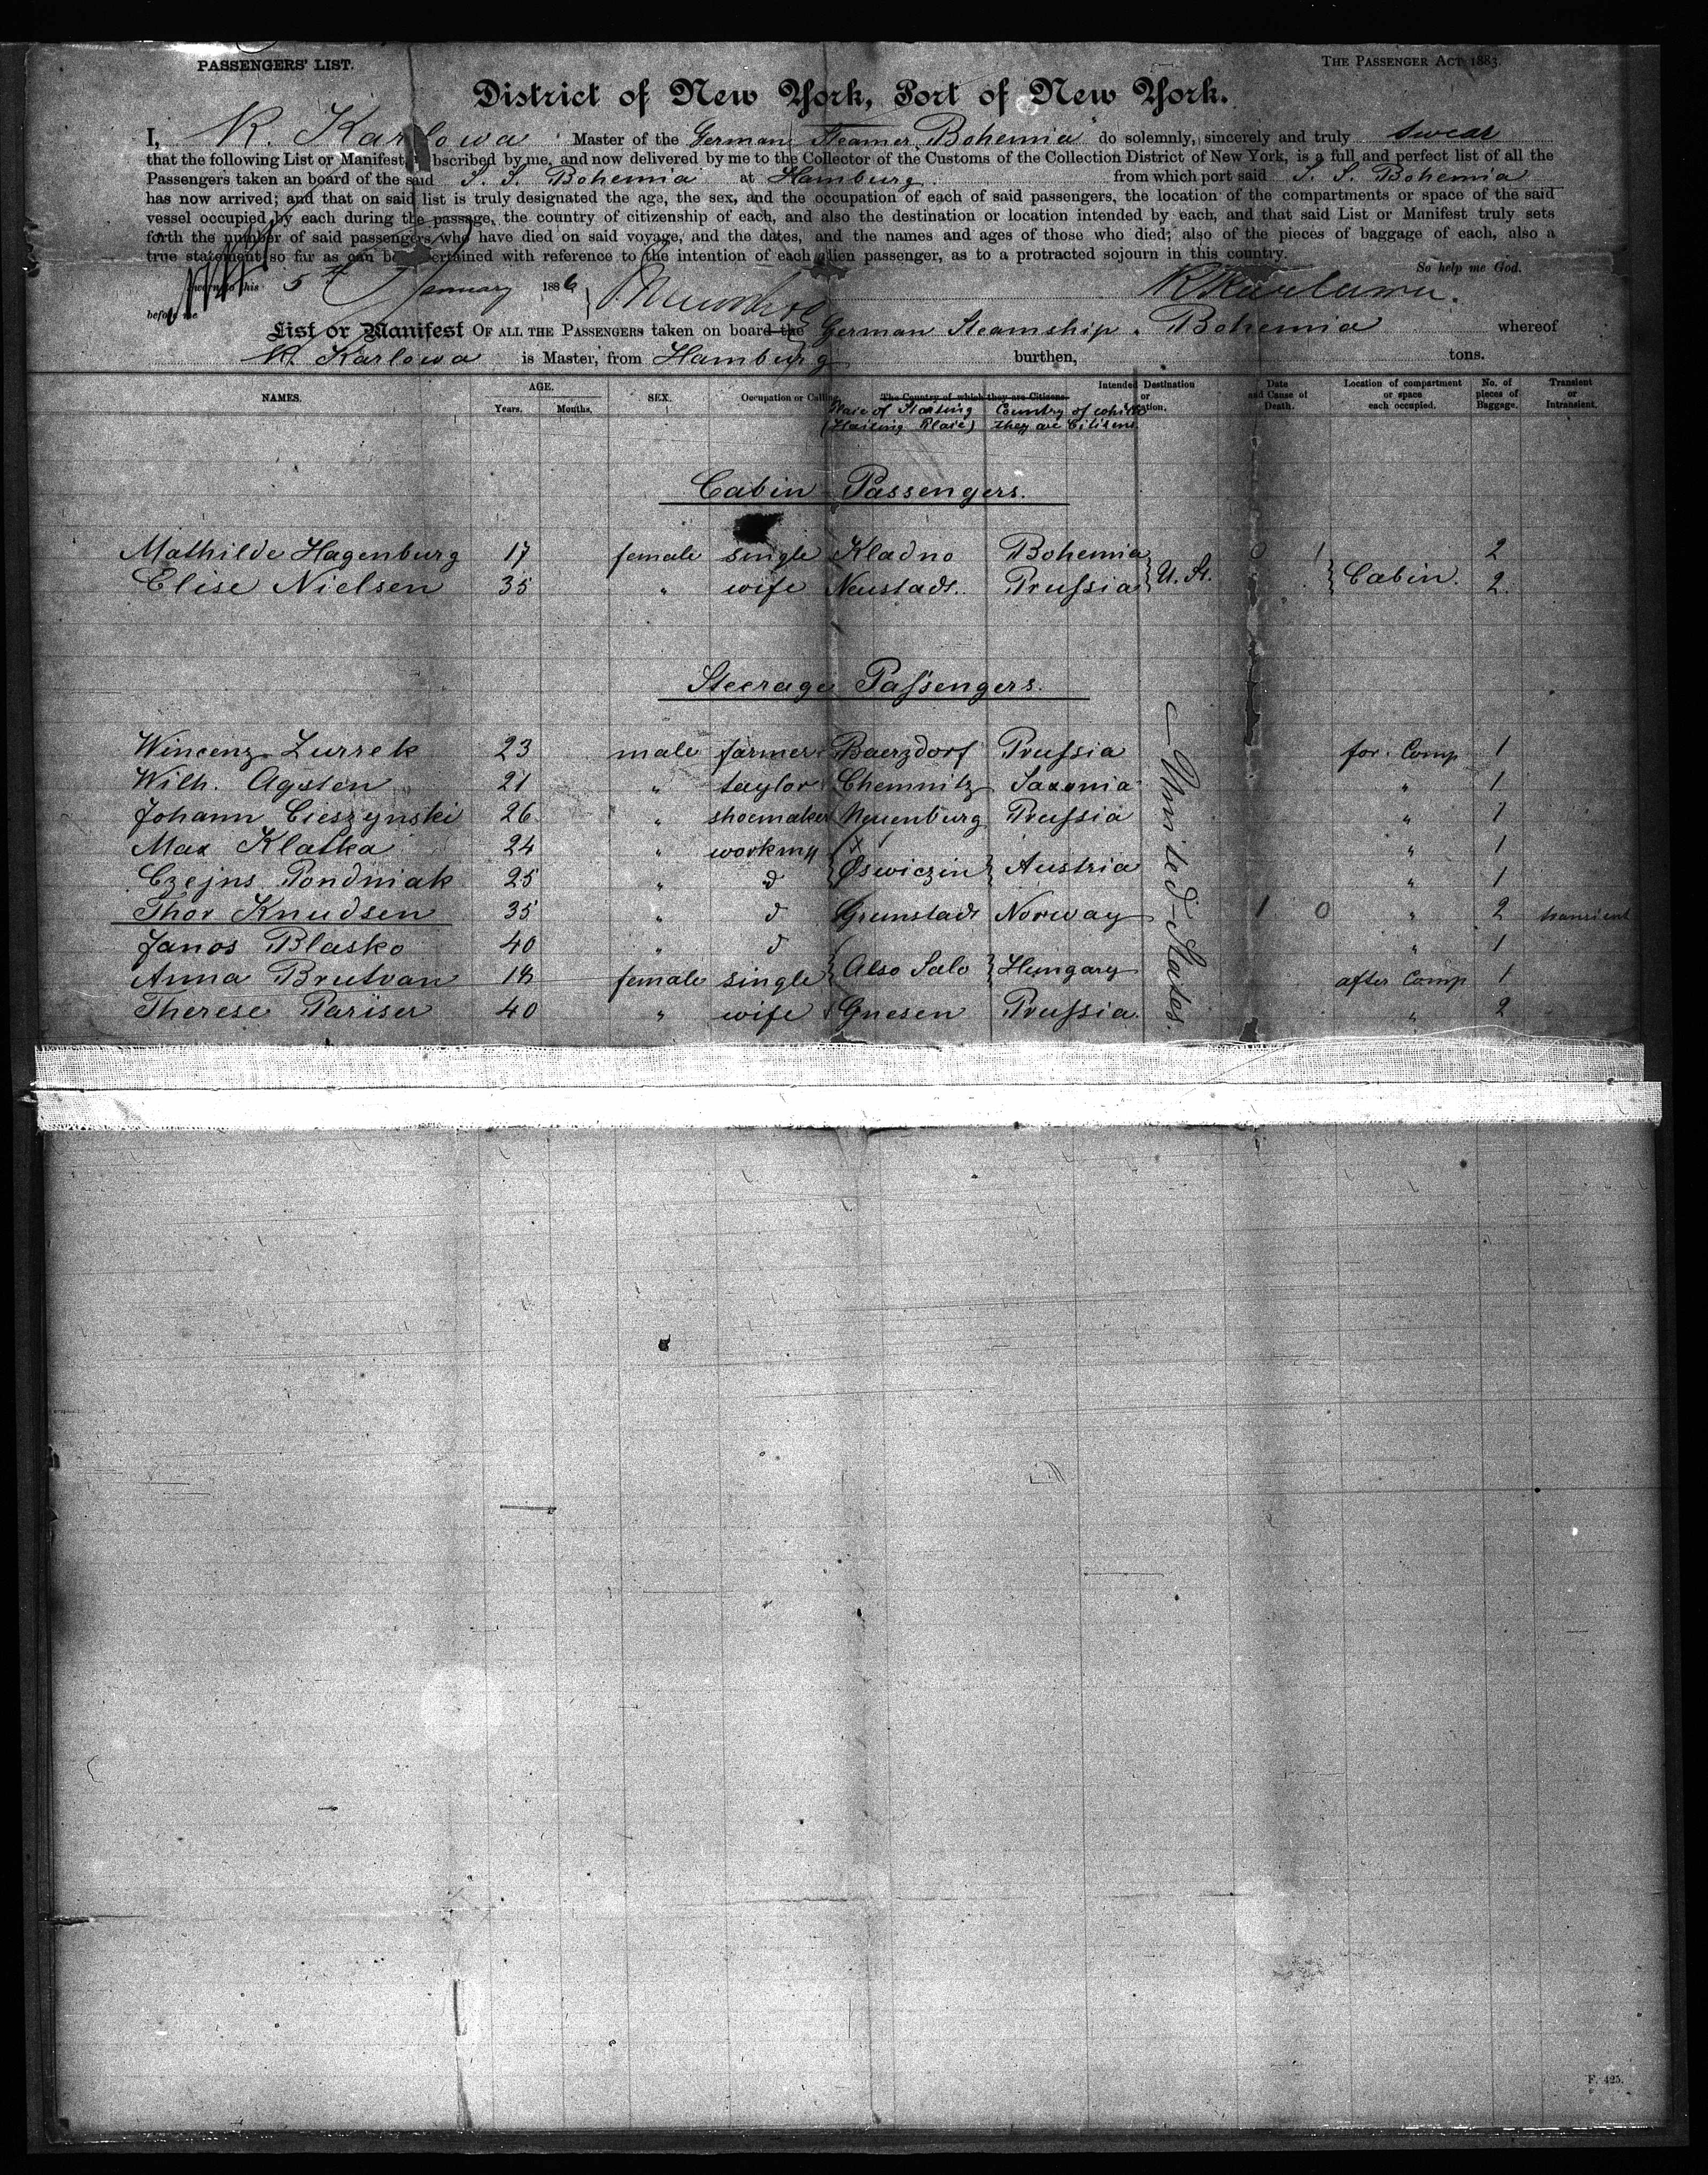 PASSENGERS' LIST.
THE PASSENGER ACT 1883.
District of New York, Port of New York.
I, R. Karlowa Master of the German Steamer "Bohemia" do solemnly, sincerely and truly swear
that the following List or Manifest, bscribed by me, and now delivered by me to the Collector of the Customs of the Collection District of New York, is a full and perfect list of all the
Passengers taken an board of the said S. S. Bohemia at Hamburg from which port said S. S. Bohemia
has now arrived; and that on said list is truly designated the age, the sex, and the occupation of each of said passengers, the location of the compartments or space of the said
vessel occupied by each during the passage, the country of citizenship of each, and also the destination or location intended by each, and that said List or Manifest truly sets
forth the number of said passengers who have died on said voyage, and the dates, and the names and ages of those who died; also of the pieces of baggage of each, also a
true statement so far as can be ertained with reference to the intention of each alien passenger, as to a protracted sojourn in this country.
So help me God.
Sworn to this 5th January 1886
R Karlowa.
before me
List or Manifest OF ALL THE PASSENGERS taken on board the German Steamship Bohemia whereof
R. Karlowa is Master, from Hamburg burthen, tons.
NAMES. AGE. Years. Months. SEX. Occupation or Calling. The Country of which they are Citizens. Intended Destination or Location. Date and Cause of Death. Location of compartment or space each occupied. No. of pieces of Baggage. Transient or Intransient.
Place of Starting Country of which
(Starting Place) they are Citizens
Cabin Passengers.
Mathilde Hagenburg 17 female single Kladno Bohemia 0 1 2
Elise Nielsen 35 " wife Neustadt. Prussia U. St. Cabin. 2.
Steerage Passengers.
Wincenz Zurrek 23 male farmer Baerzdorf Prussia United States. for. Comp 1
Wilh. Agsten 21 " taylor Chemnitz Saxonia " 1
Johann Cieszynski 26 " shoemaker Neuenburg Prussia " 1
Max Klatka 24 " workmn " 1
Czejns Pondniak 25 " d Oswiczin Austria " 1
Thor Knudsen 35 " d Grunstadt Norway 1 0 " 2 transient
Janos Blasko 40 " d " 1
Anna Brutvan 18 female single Also Salo Hungary after Comp 1
Therese Pariser 40 " wife Gnesen Prussia. " 2
F. 425.